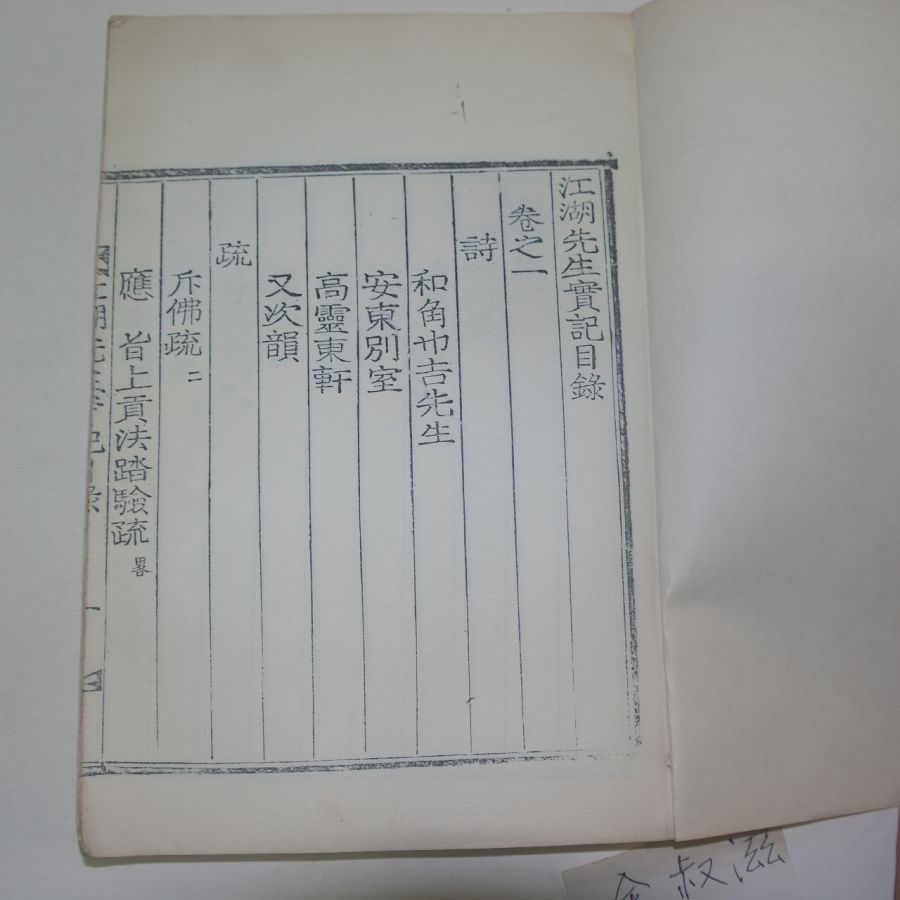 江湖先生實記目錄
卷之一
詩
和角也吉先生
安東別室
高靈東軒
又次韻
疏
斥佛疏 二
應 旨上貢法踏驗疏 畧
江湖先生實記目錄
一
金叔滋